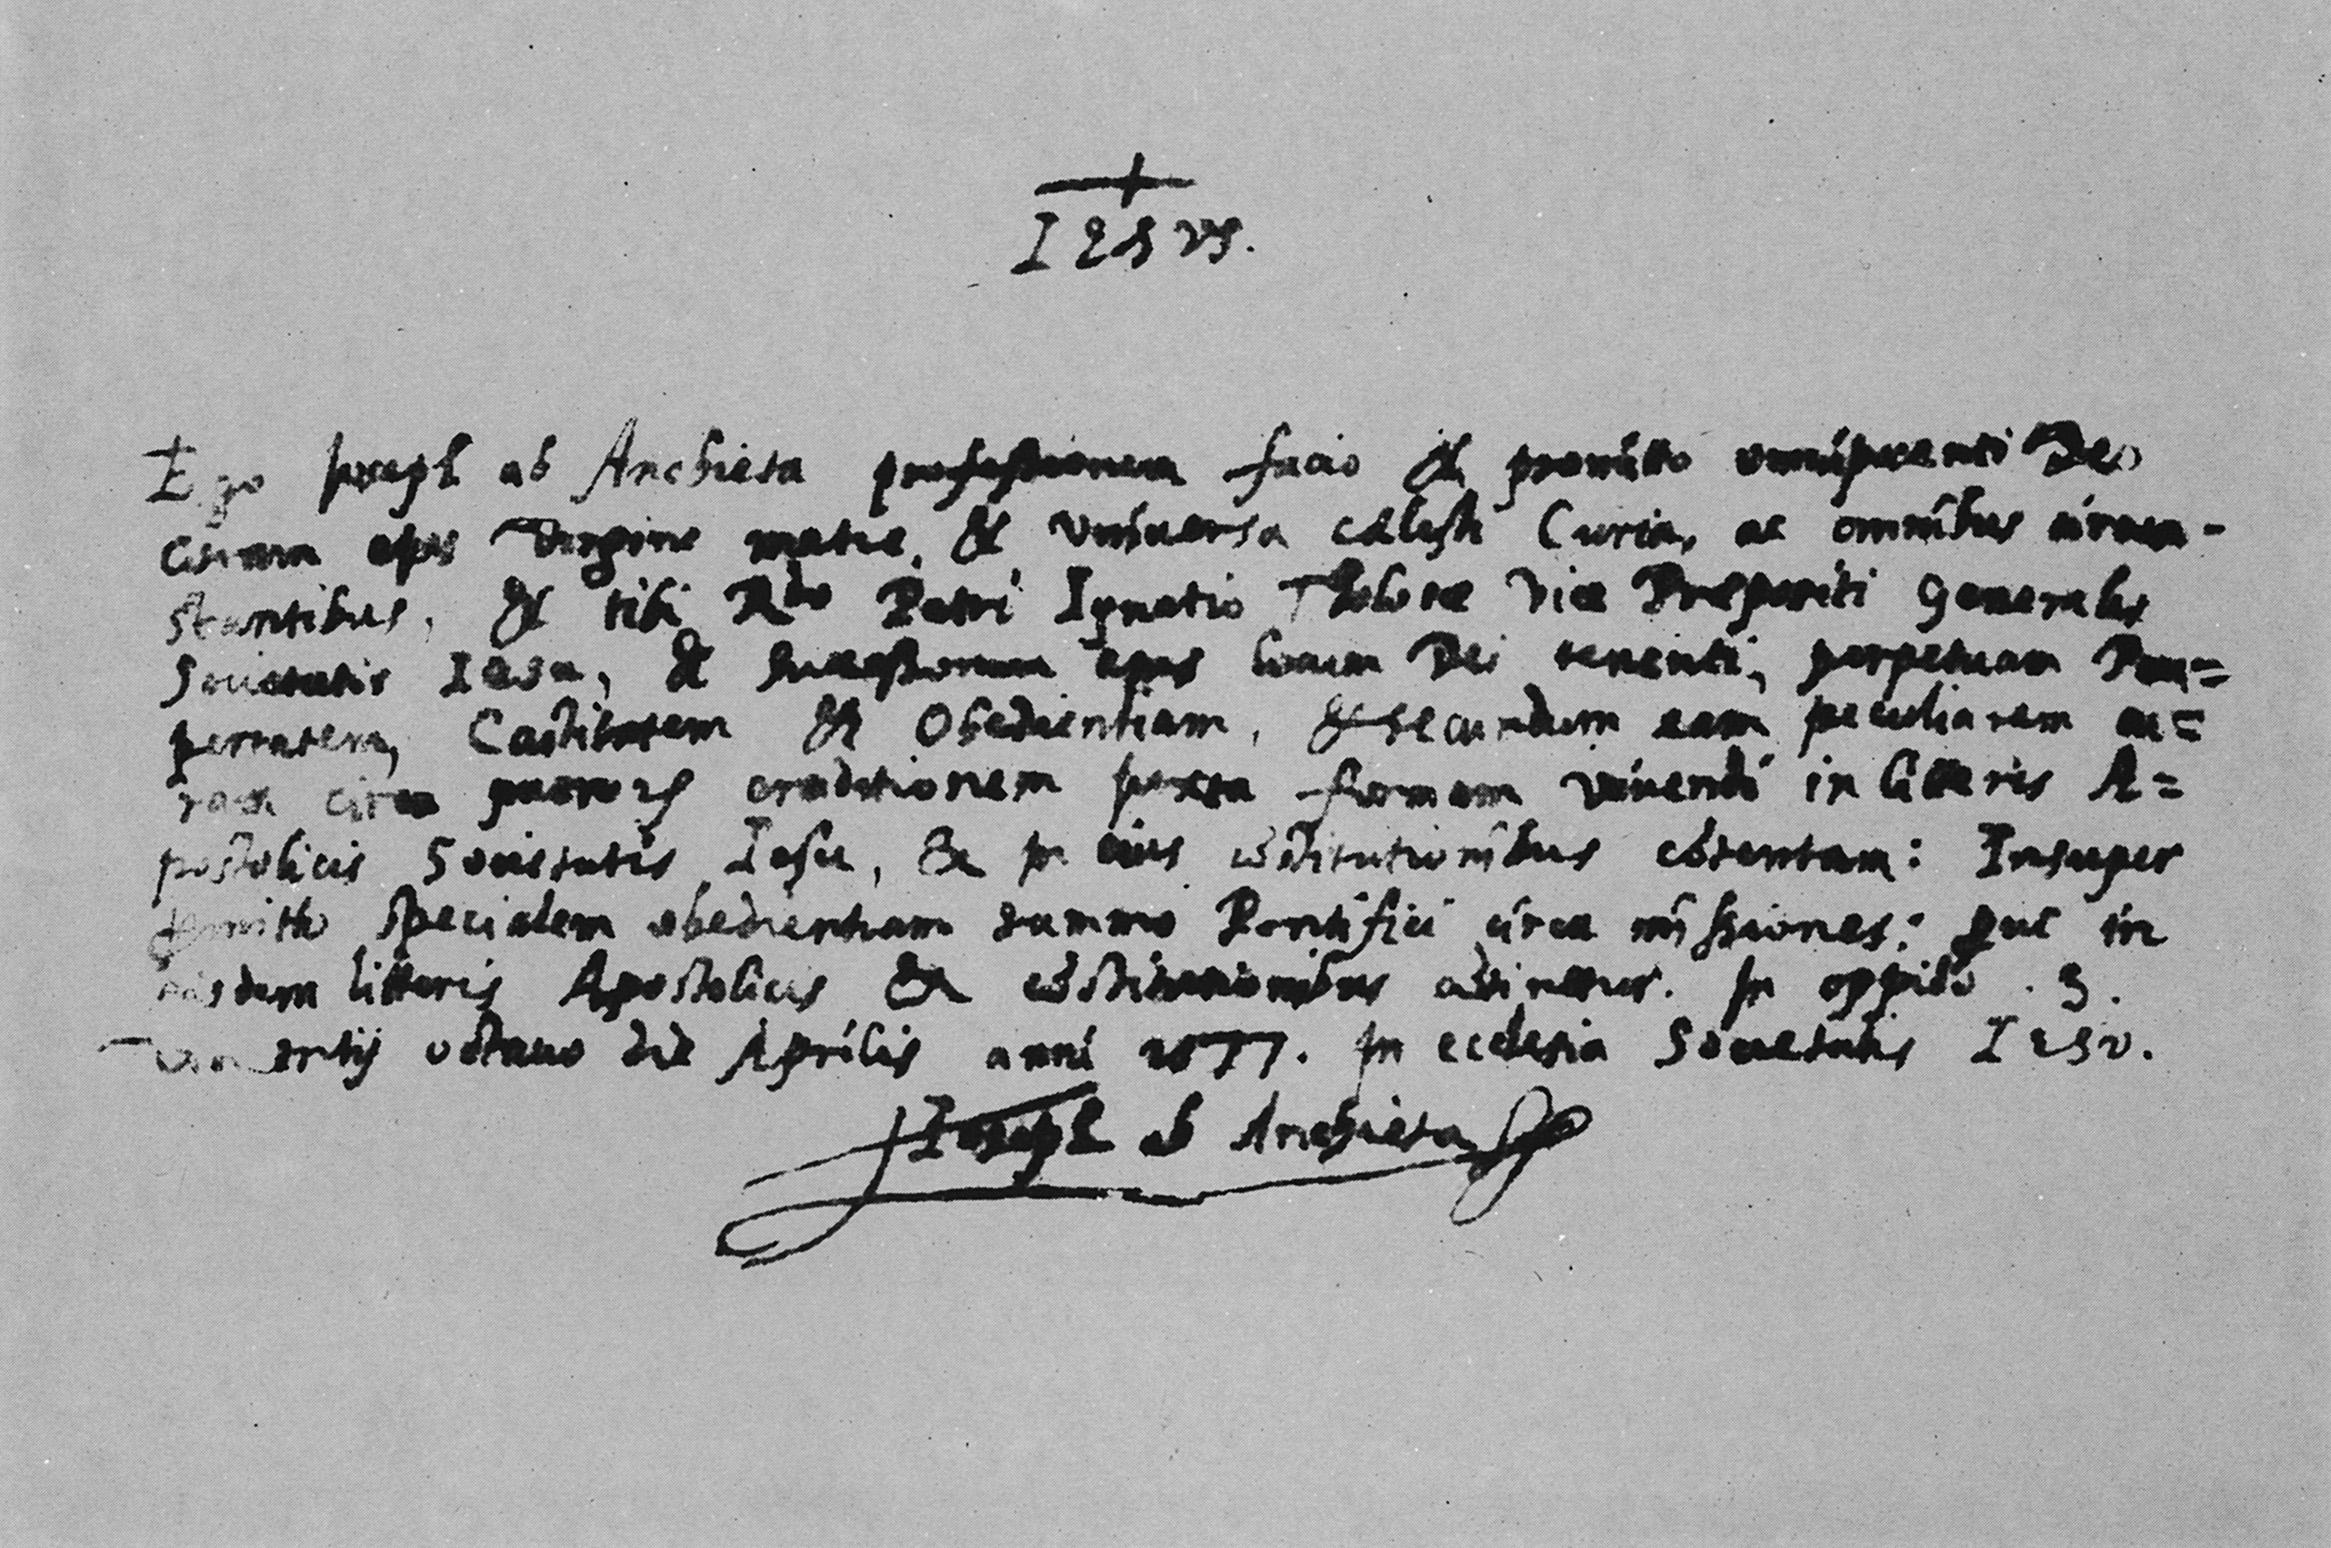 IESVS.
Ego Joseph ab Anchieta professionem facio & promitto omnipotenti Deo
coram ejus Virgine matre, & universa cælesti Curia, ac omnibus circum-
stantibus, & tibi Rdo Patri Ignatio Tholosæ vice Præpositi Generalis
Societatis Iesu, & successorum ejus locum Dei tenenti, perpetuam Pau=
pertatem, Castitatem & Obedientiam, & secundum eam peculiarem cu=
ram circa puerorum eruditionem juxta formam vivendi in litteris A=
postolicis Societatis Iesu, & in eius cõstitutionibus cõtentam: Insuper
promitto specialem obedientiam summo Pontifici circa missiones: put in
eisdem litteris Apostolicis & cõstitutionibus cõtinetur. In oppido .S.
octauo die Aprilis anni 1577. In ecclesia Societatis IESV.
Joseph ab Anchieta